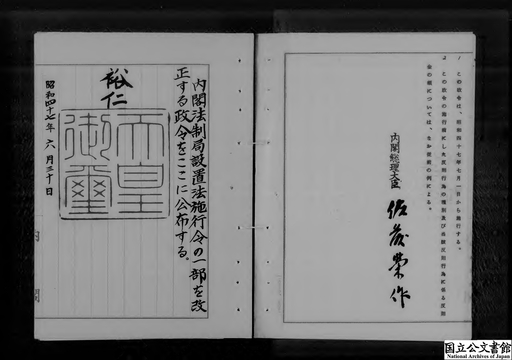 この政令は、昭和四十七年七月一日から施行する。
この政令の施行前にした反則行為の種別及び当該反則行為に係る反則
金の額については、なお従前の例による。
内閣総理大臣 佐藤榮作
内閣法制局設置法施行令の一部を改
正する政令をここに公布する。
裕仁
天皇
御璽
昭和四十七年六月三十日
内閣
国立公文書館
National Archives of Japan